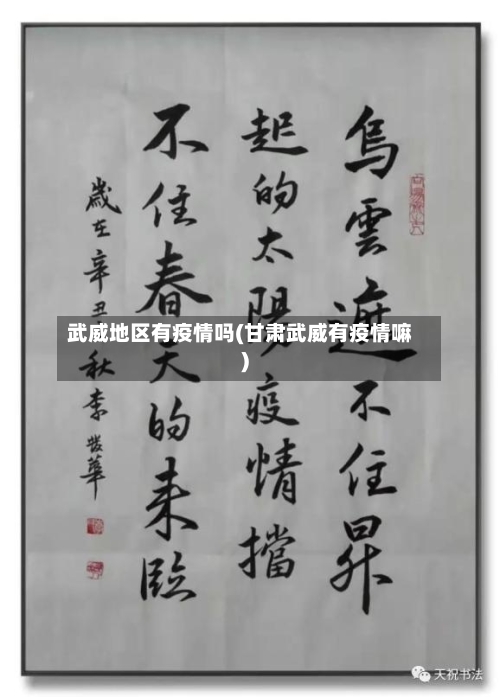 烏雲遮不住昇
起的太陽疫情擋
不住春天的来臨
歲在辛丑秋李發華
武威地区有疫情吗(甘肃武威有疫情嘛
)
天祝书法